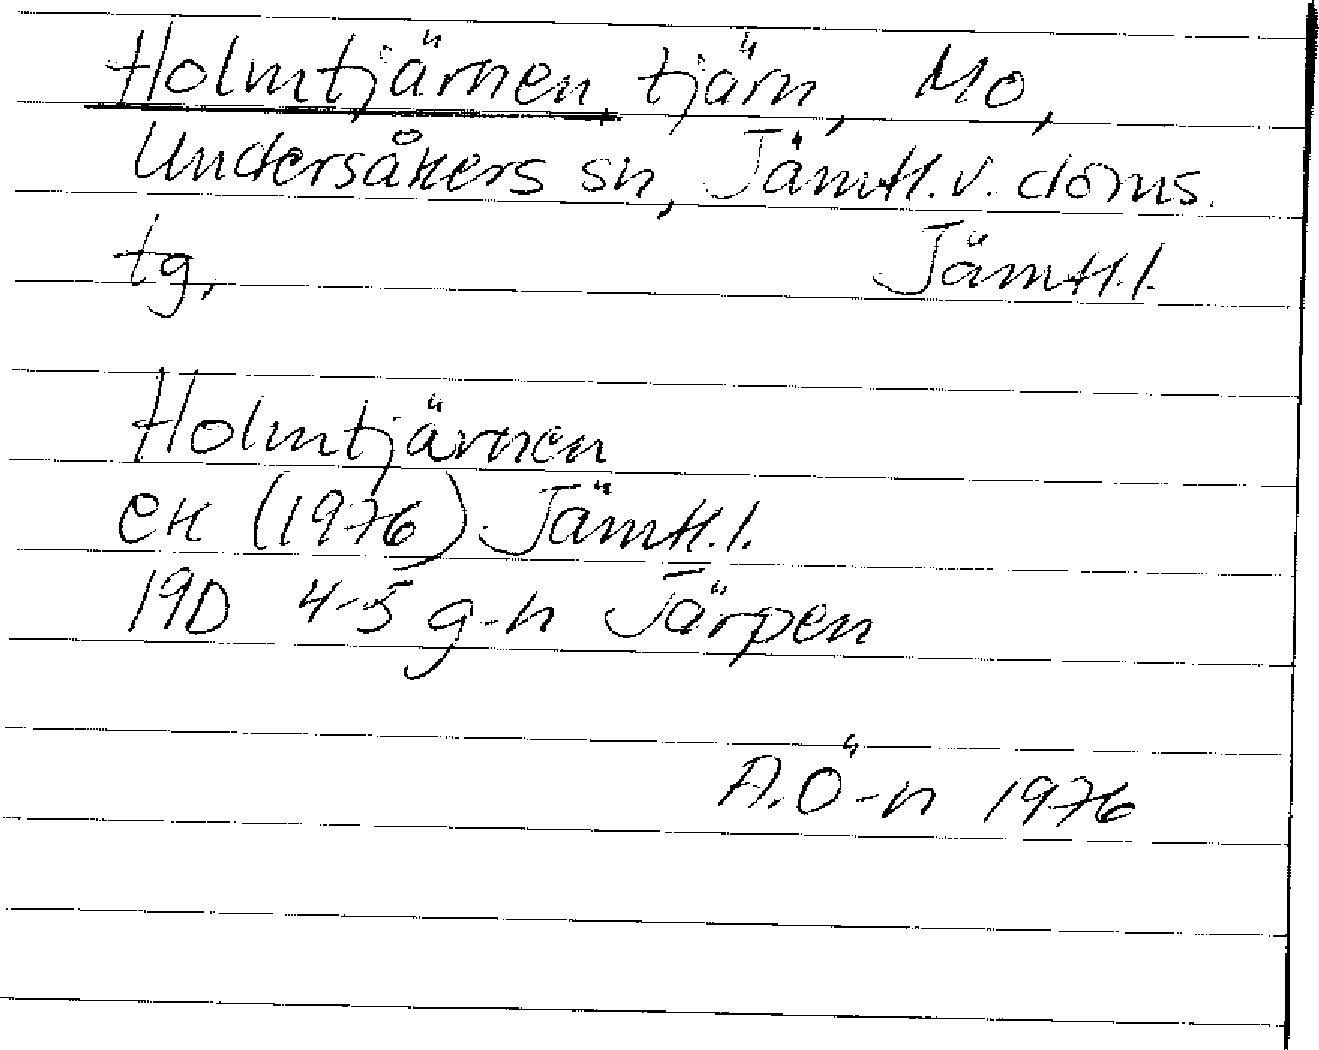 Holmtjärnen tjärn, Mo,
Undersåkers sn, Jämtl. v. doms.
tg, Jämtl. l.
Holmtjärnen
ek (1976) Jämtl. l.
19D 4-5 g-h Järpen
A.Ö-n 1976